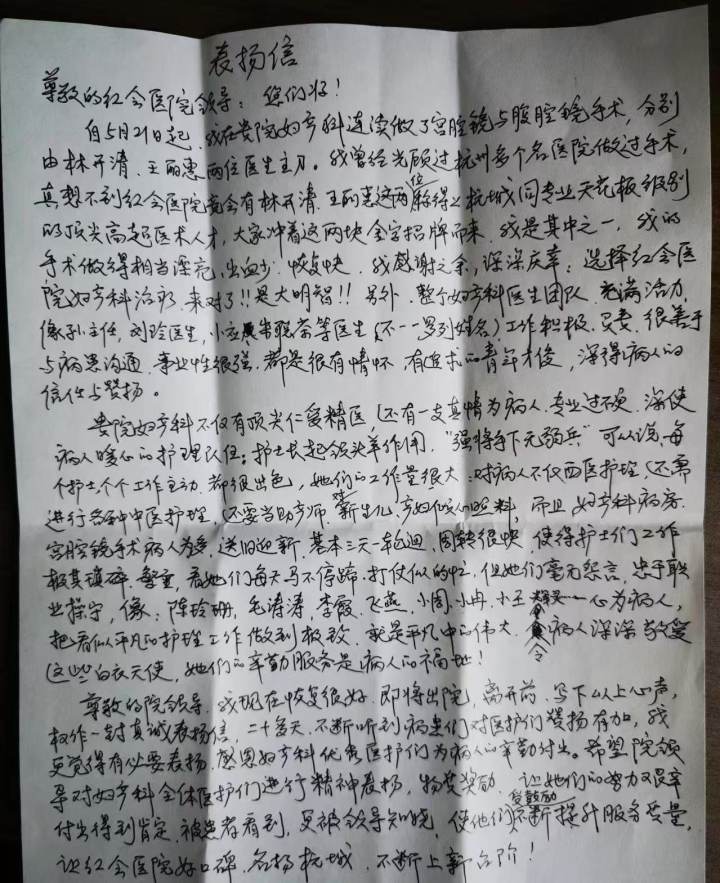 表扬信
尊敬的红会医院领导：您们好！
自5月21日起，我在贵院妇产科连续做了宫腔镜与腹腔镜手术，分别
由林开清、王丽惠两位医生主刀。我曾经光顾过杭州多个名医院做过手术，
真想不到红会医院竟会有林开清、王丽惠这两位称得上杭城同专业天花板级别
的顶尖高超医术人才，大家冲着这两块金字招牌而来，我是其中之一，我的
手术做得相当漂亮，出血少，恢复快，我感谢之余，深深庆幸：选择红会医
院妇产科治疗，来对了!!是大明智!!另外，整个妇产科医生团队，充满活力，
像孙主任，刘玲医生，小 等医生（不一一罗列姓名）工作积极、 ，很善于
与病患沟通，事业性很强，都是很有情怀，有追求的青年才俊，深得病人的
信任与赞扬。
贵院妇产科不仅有顶尖仁爱精医，还有一支真情为病人、专业过硬，深使
病人暖心的护理队伍；护士长起领头羊作用，“强将手下无弱兵”可以说，每
个护士个个工作主动，都很出色，她们的工作量很大：对病人不仅西医护理，还需
进行各种中医护理，还要当助产师，管新生儿，产妇 照料，而且，妇产科病房
宫腔镜手术病人为多，送旧迎新，基本三天一轮迴，周转很快，使得护士们工作
极其琐碎，繁重，看她们每天马不停蹄，打仗似的忙，但她们毫无怨言，忠于职
业操守，像：陈玲珊，毛涛涛，李霞，飞燕，小周，小冉，小王 一心为病人，
把看似平凡的护理工作做到极致，就是平凡中的伟大，令病人深深敬爱
这些白衣天使，她们的辛勤服务是病人的福地！
尊敬的院领导，我现在恢复很好，即将出院，离开前，写下以上心声，
权作一封真诚表扬信，二十多天，不断听到病患们对医护们赞扬有加，我
更觉得有必要表扬、感恩妇产科优秀医护们为病人的辛勤付出。希望院领
导对妇产科全体医护们进行精神表扬，物质奖励，让她们的努力及辛
付出得到肯定，被患者看到，更被领导知晓，使他们受鼓励不断提升服务质量，
让红会医院好口碑，名扬杭城，不断上新台阶！